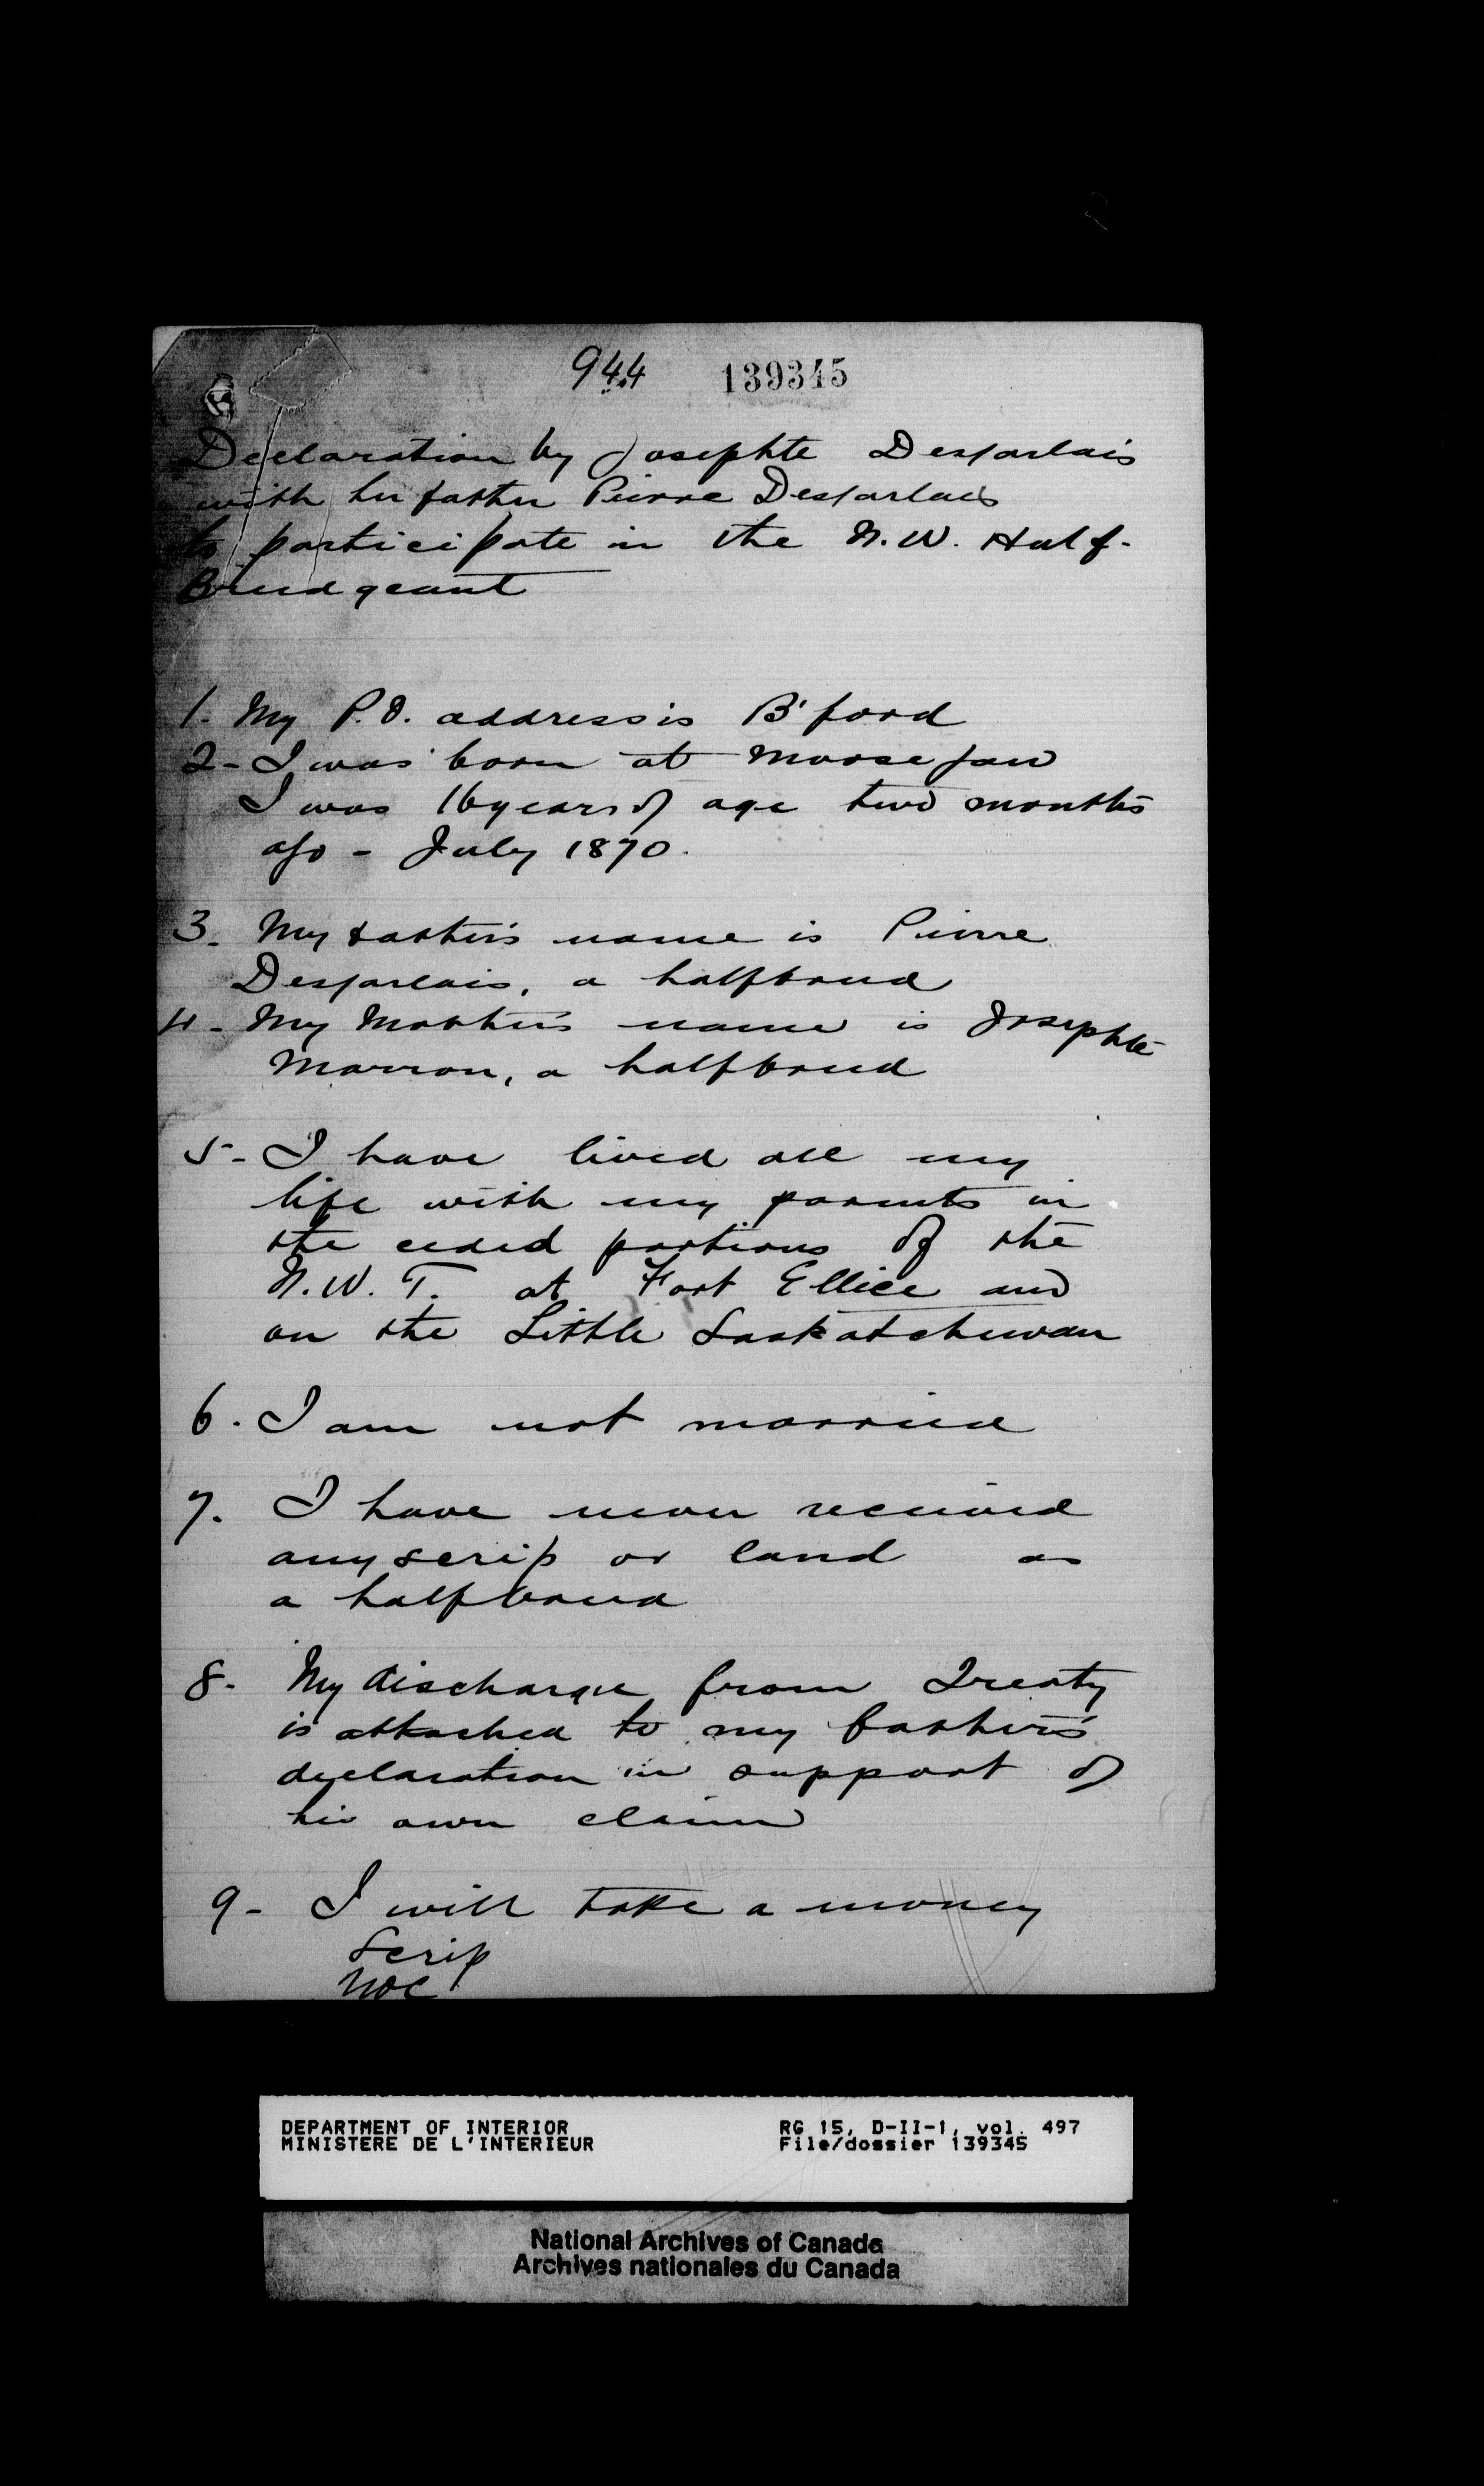 944 139345
Declaration by Josephte Desjarlais
with her father Pierre Desjarlais
to participate in the N.W. Half-
Breed grant
1. My P.O. address is B'ford
2 - I was born at Moose Jaw
I was 16 years of age two months
ago - July 1870.
3. My father's name is Pierre
Desjarlais, a halfbreed
4 - My Mother's name is Josephte
Marron, a halfbreed
5 - I have lived all my
life with my parents in
the ceded portions of the
N.W.T. at Fort Ellice and
on the Little Saskatchewan
6. I am not married
7. I have never received
any scrip or land as
a halfbreed
8. My discharge from Treaty
is attached to my father's
declaration in support of
his own claim
9 - I will take a money
Scrip
DEPARTMENT OF INTERIOR RG 15, D-II-1, vol. 497
MINISTERE DE L'INTERIEUR File/dossier 139345
National Archives of Canada
Archives nationales du Canada